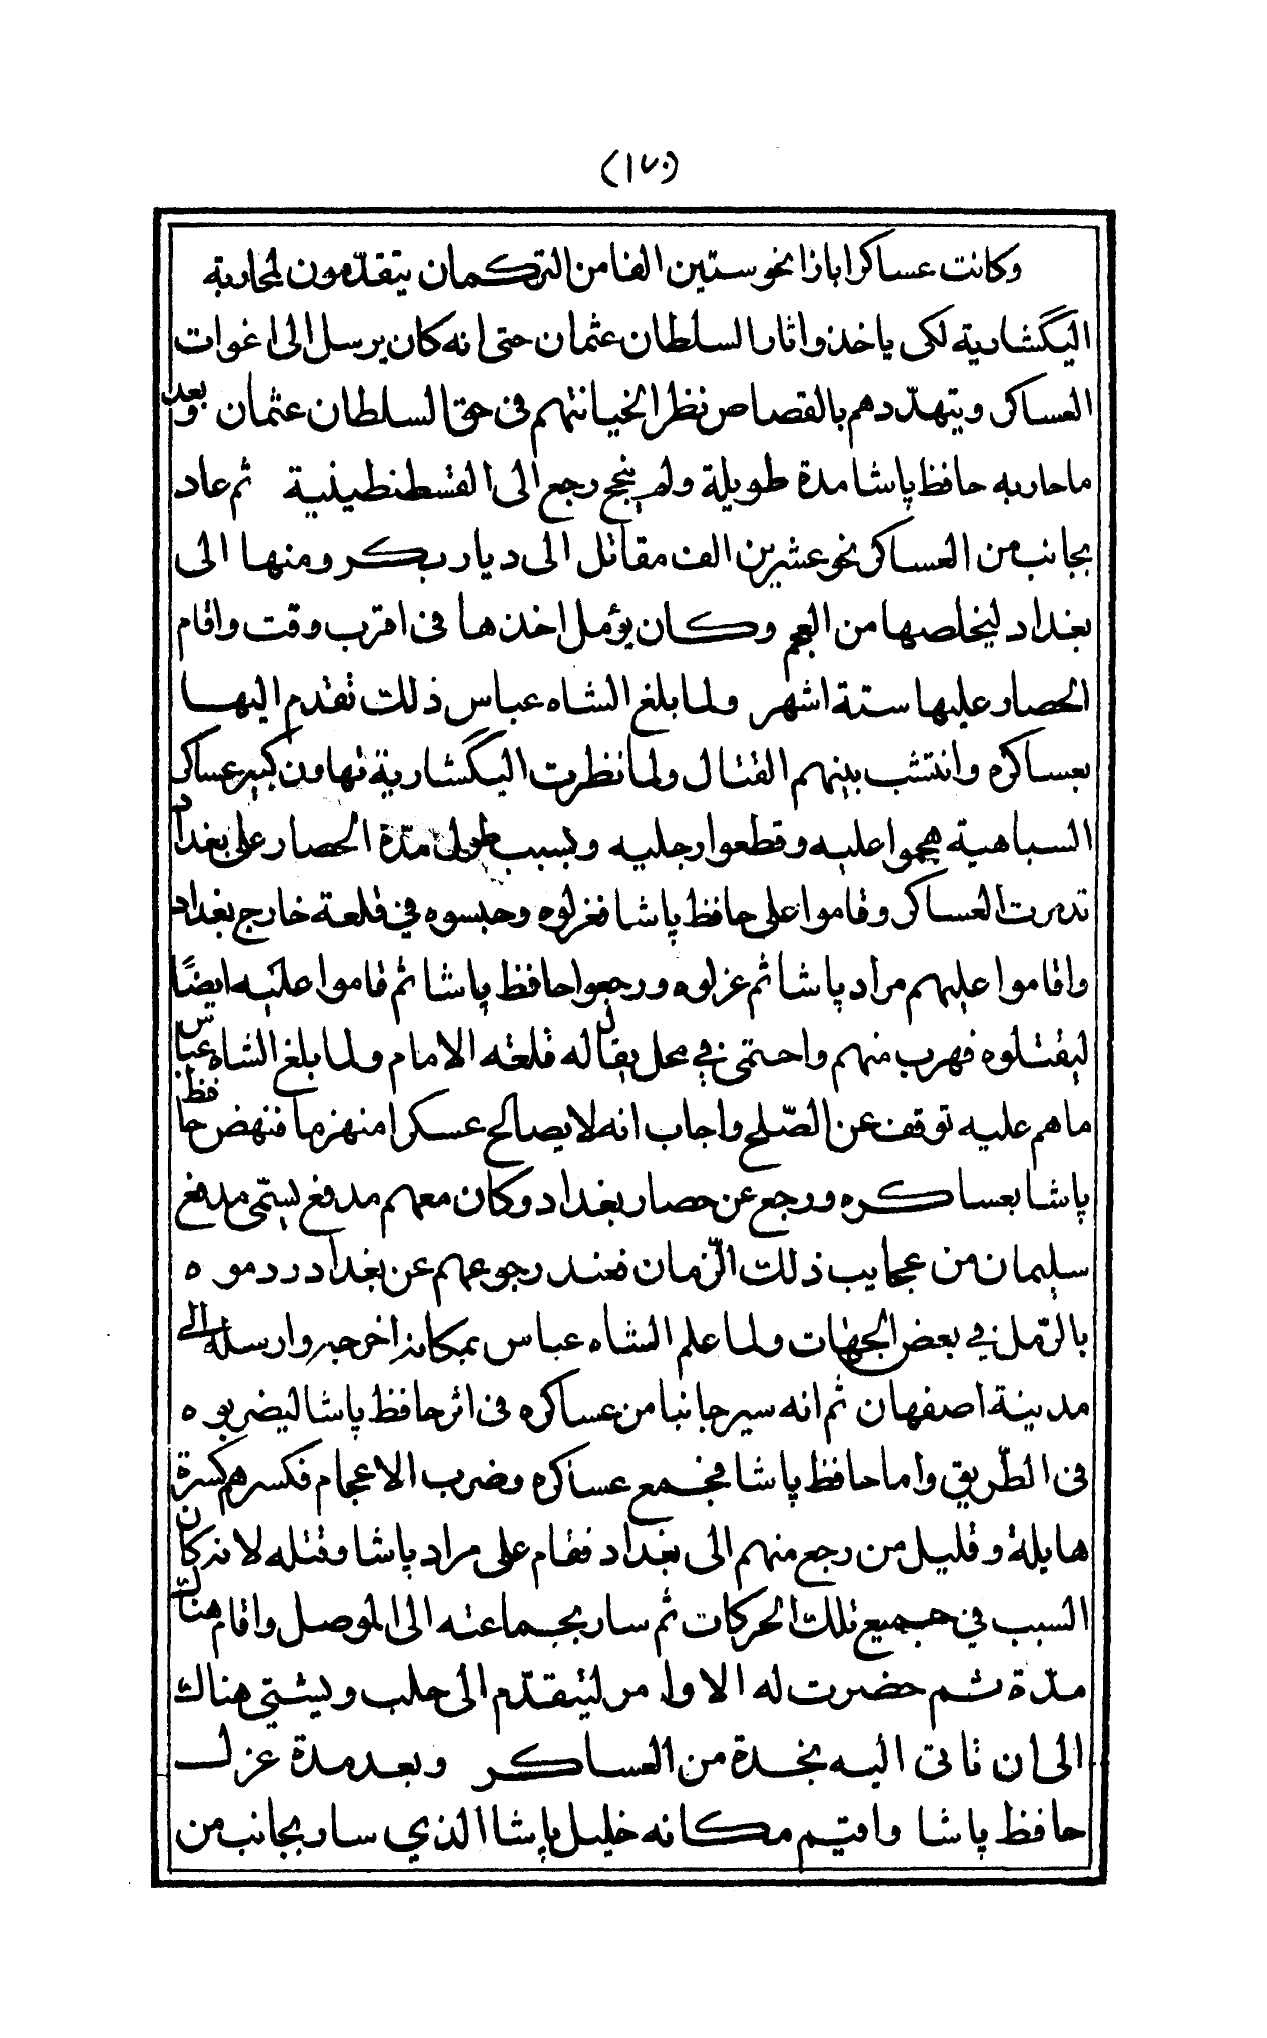 (١٧٠)
وكانت عساكر ابازا نحو ستين الفا من التركمان يتقدّمون لمحاربة
اليكشارية لكى ياخذوا ثار السلطان عثمان حتى انه كان يرسل الى اغوات
العساكر ويتهدّدهم بالقصاص نظر الخيانتهم فى حق السلطان عثمان وبعد
ما حاربه حافظ پاشا مدة طويلة ولم ينجح رجع الى القسطنطينية ثم عاد
بجانب من العساكر نحو عشرين الف مقاتل الى ديار بكر ومنها الى
بغداد ليخلصها من العجم وكان يؤمل اخذها فى اقرب وقت واقام
الحصار عليها ستة اشهر ولما بلغ الشاه عباس ذلك تقدم اليها
بعساكره وانتشب بينهم القتال ولما نظرت اليكشارية تهاون كبير عساكر
السباهية هجموا عليه وقطعوا رجليه وبسبب طول مدّة الحصار على بغداد
تدمرت العساكر وقاموا على حافظ پاشا فعزلوه وحبسوه في قلعة خارج بغداد
واقاموا عليهم مراد پاشا ثم عزلوه ورجعوا حافظ پاشا ثم قاموا عليه ايضًا
ليقتلوه فهرب منهم واحتمى في محل يقال له قلعة الامام ولما بلغ الشاه عباس
ما هم عليه توقف عن الصّلح واجاب انه لا يصالح عسكرا منهزما فنهض حافظ
پاشا بعساكره ورجع عن حصار بغداد وكان معهم مدفع يسمّى مدفع
سليمان من عجايب ذلك الزّمان فعند رجوعهم عن بغداد ردموه
بالرّمل في بعض الجهات ولما علم الشاه عباس بمكانه اخرجه وارسله الى
مدينة اصفهان ثم انه سير جانبا من عساكره فى اثر حافظ پاشا ليضربوه
فى الطّريق واما حافظ پاشا فجمع عساكره وضرب الاعجام فكسرهم كسرة
هايلة وقليل من رجع منهم الى بغداد فقام على مراد پاشا وقتله لانه كان
السبب في جميع تلك الحركات ثم سار بجماعته الى الموصل واقام هناك
مدّة ثم حضرت له الاوامر ليتقدّم الى حلب ويشتي هناك
الى ان تاتى اليه نجدة من العساكر وبعد مدة عزل
حافظ پاشا واقيم مكانه خليل پاشا الذي سار بجانب من